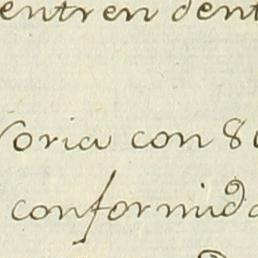 entren dent
Noria con 8
conformida